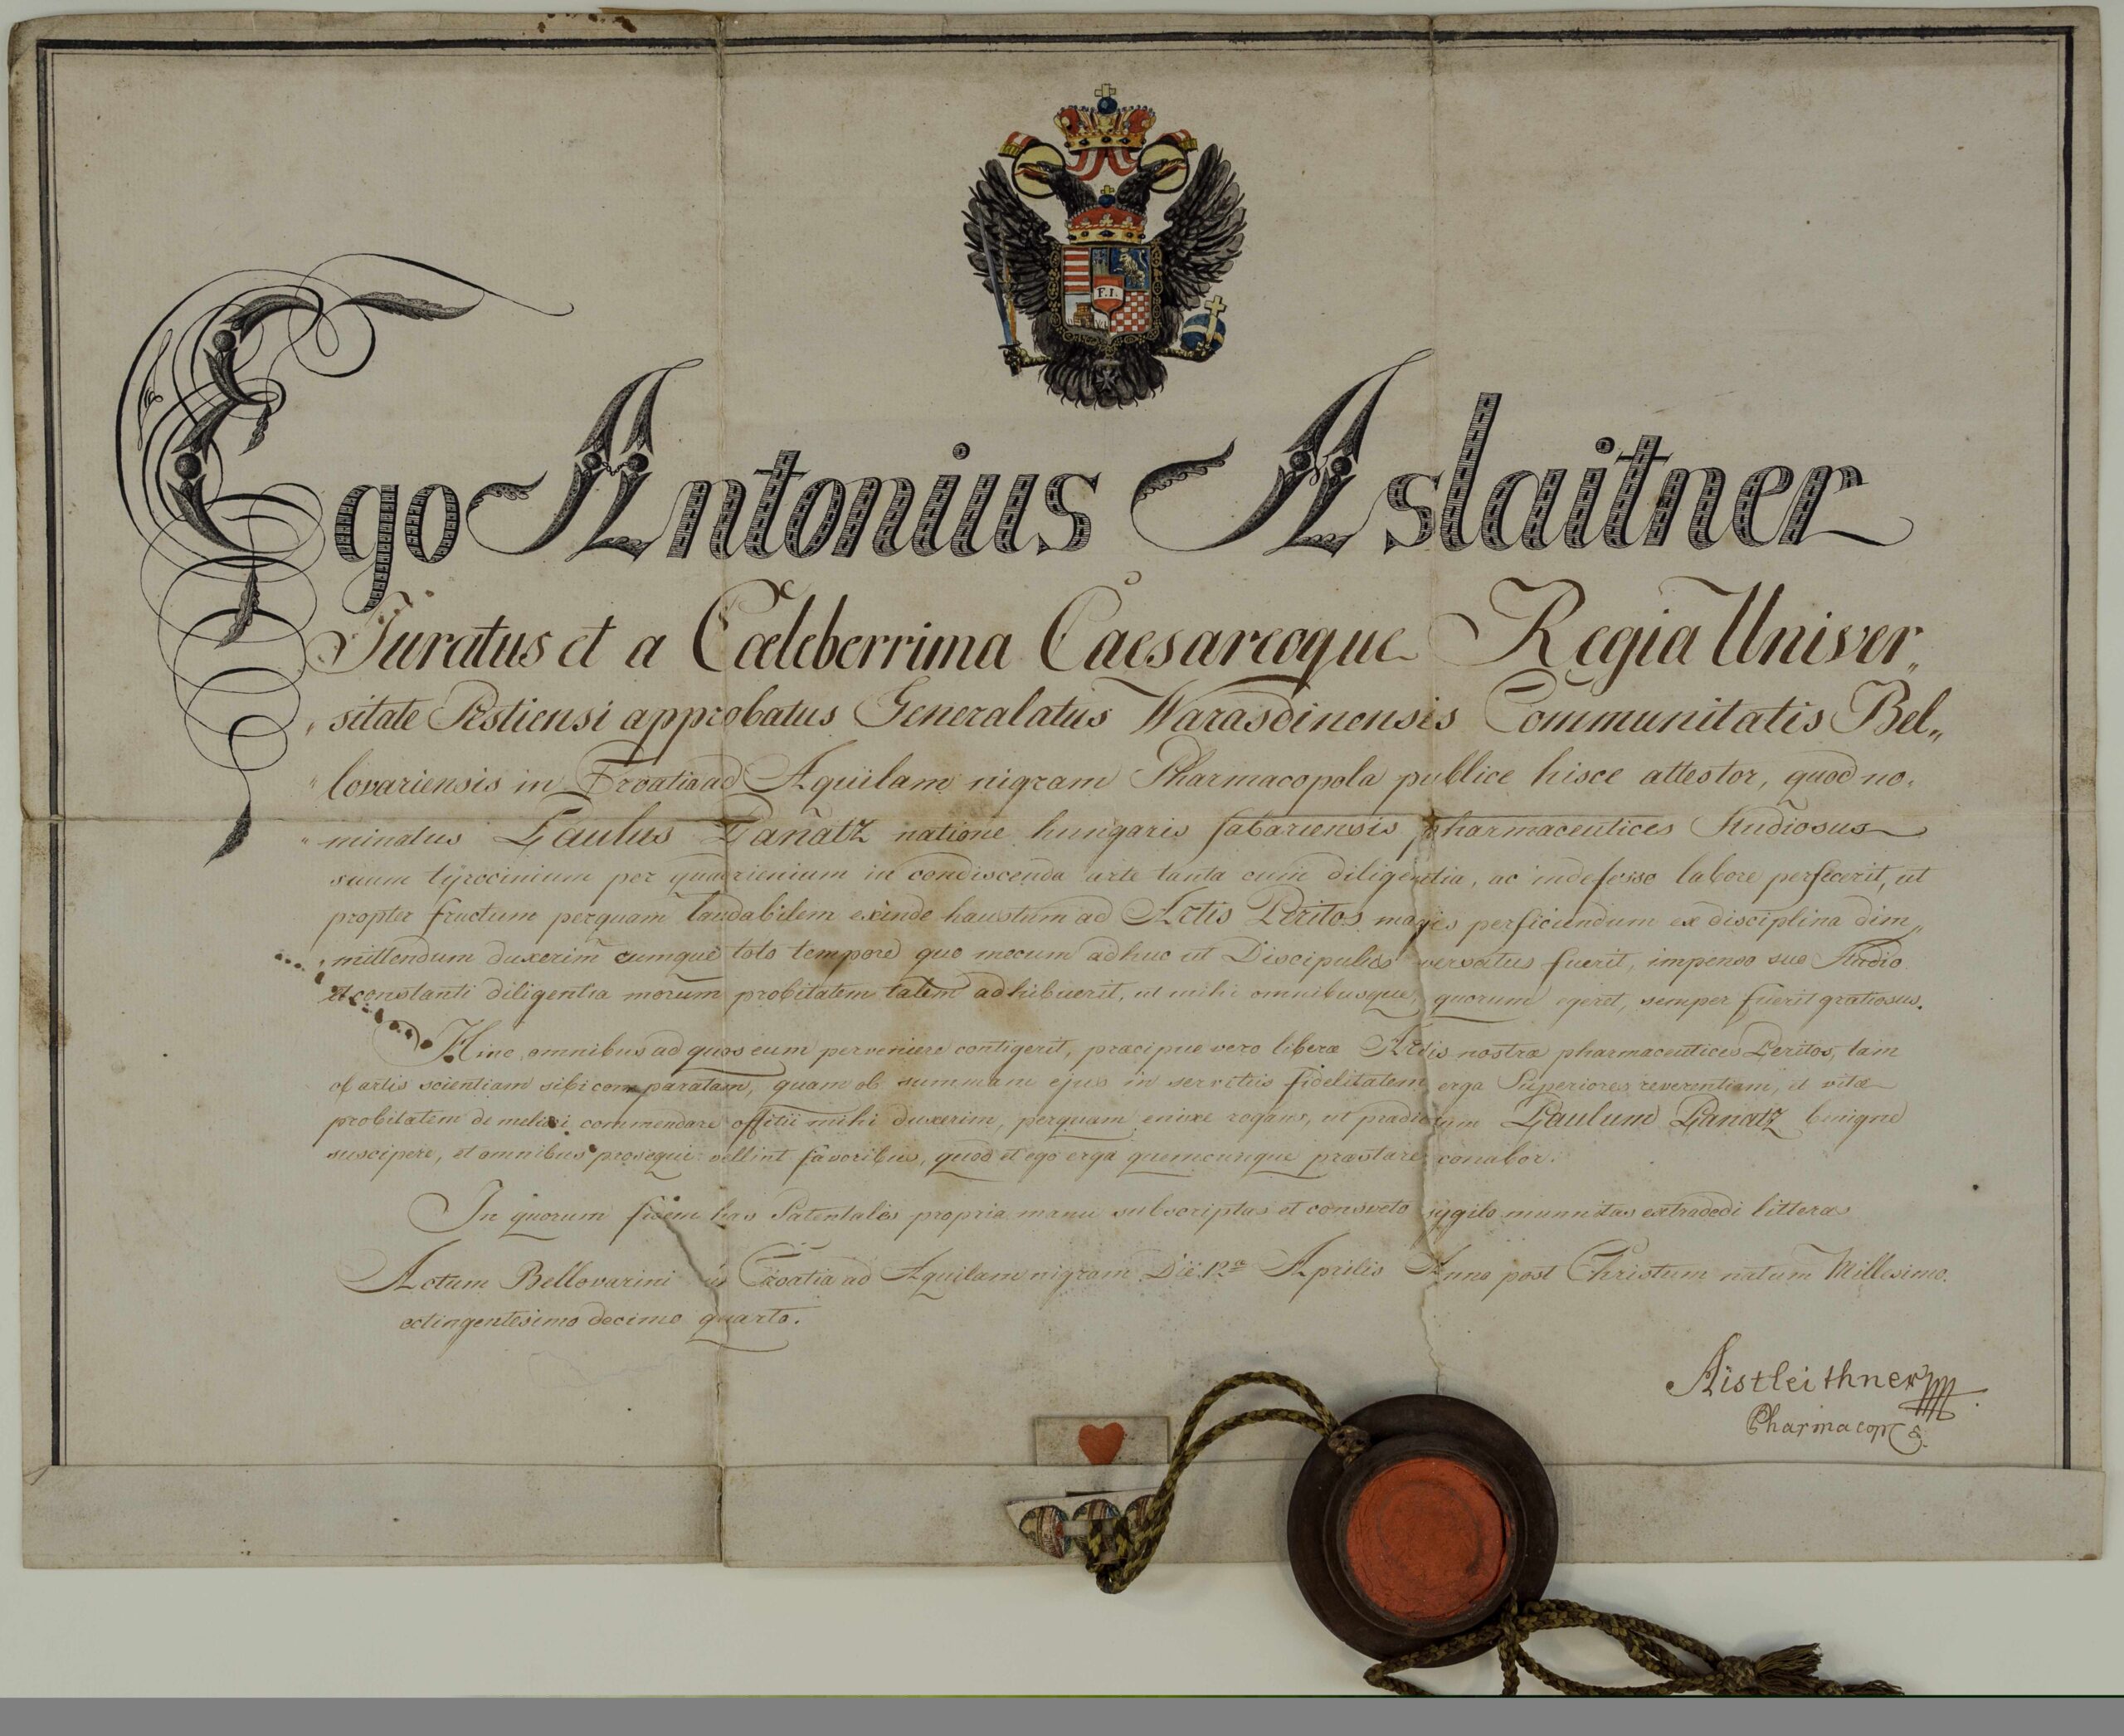 F.I.
Ego Antonius Aslaitner
Juratus et a Cæleberrima Caesareoque Regia Univer„
„sitate Pestiensi approbatus Generalatus Warasdinensis Communitatis Bel„
„lovariensis in Croatia ad Aquilam nigram Pharmacopola publice hisce attestor, quod no„
„minatus Paulus Panatz natione hungaris sabariensis pharmaceutices Studiosus
suum tyrocinium per quadrienium in condiscenda arte tanta cum diligentia, ac indefesso labore perfecerit, ut
propter fructum perquam laudabilem exinde haustum ad Artis Peritos magis perficiundum ex disciplina dim„
„mittendum duxerim cumque toto tempore quo mecum adhuc ut Discipulus versatus fuerit, impenso suo Studio
et constanti diligentia morum probitatem talem adhibuerit, ut mihi omnibusque, quorum egeret, semper fuerit gratiosus.
Hinc omnibus ad quos eum pervenire contigerit, præcipue vero liberæ Artis nostræ pharmaceutices Peritos, tam
ob artis scientiam sibi comparatam, quam ob summam ejus in servitiis fidelitatem erga Superiores reverentiam, et vitæ
probitatem de meliori commendare offitii mihi duxerim, perquam enixe rogans, ut prædictum Paulum Panatz benigne
suscipere, et omnibus prosequi vellint favoribus, quod et ego erga quemcunque præstare conabor.
In quorum fidem has Patentales propria manu subscriptas et consveto sygilo munnitas extradedi litteras
Actum Bellovarini in Croatia ad Aquilam nigram Die 12a Aprilis Anno post Christum natum Millesimo.
octingentesimo decimo quarto.
Aistleithner
Pharmacop